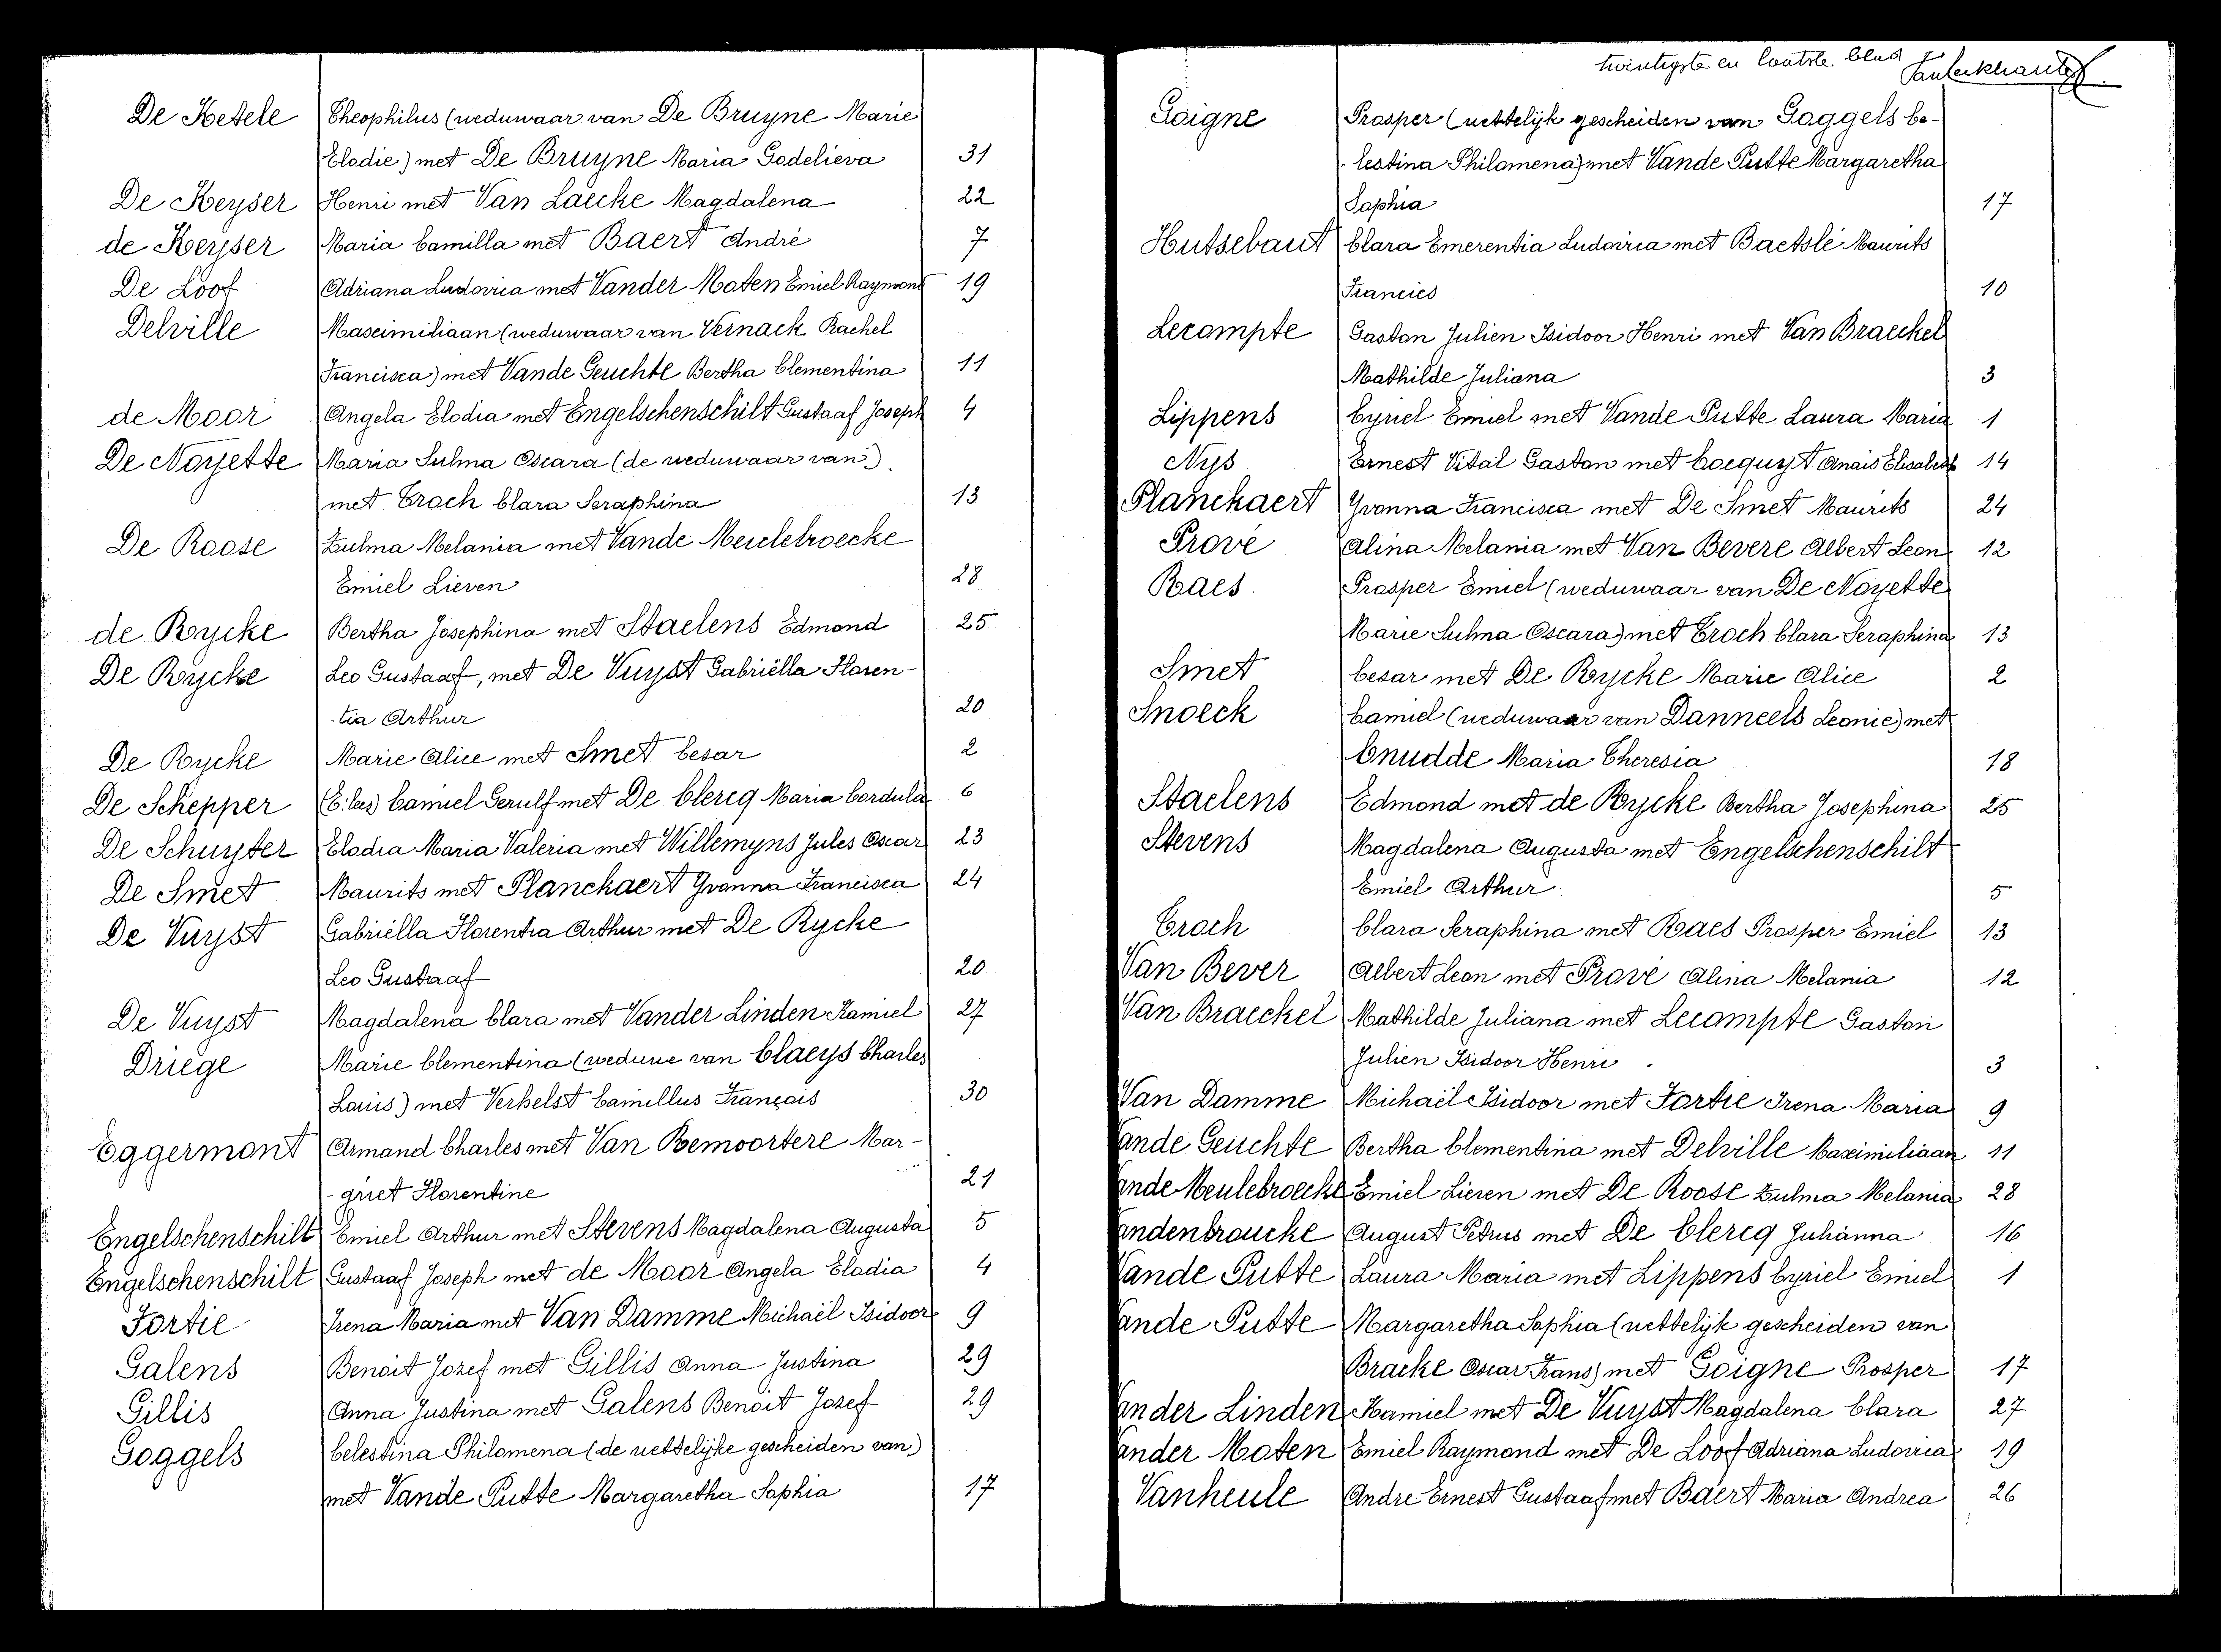 De Ketele Theophilus (weduwaar van De Bruyne Marie
Elodie) met De Bruyne Maria Godelieva 31
De Keyser Henri met Van Laecke Magdalena 22
de Keyser Maria Camilla met Baert André 7
De Loof Adriana Ludovica met Vander Moten Emiel Raymond 19
Delville Maximiliaan (weduwaar van Vernack Rachel
Francisca) met Vande Geuchte Bertha Clementina 11
de Moor Angela Elodia met Engelschenschilt Gustaaf Joseph 4
De Noyette Maria Sulma Oscara (de weduwaar van)
met Troch Clara Seraphina 13
De Roose Zulma Melania met Vande Meulebroecke
Emiel Lieven 28
de Rycke Bertha Josephina met Staelens Edmond 25
De Rycke Leo Gustaaf, met De Vuyst Gabriëlla Floren-
-tia Arthur 20
De Rycke Marie Alice met Smet Cesar 2
De Schepper Camiel Gerulf met De Clercq Maria Cordula 6
De Schuyter Elodia Maria Valeria met Willemyns Jules Oscar 23
De Smet Maurits met Planckaert Yvonna Francisca 24
De Vuyst Gabriëlla Florentia Arthur met De Rycke
Leo Gustaaf 20
De Vuyst Magdalena Clara met Vander Linden Kamiel 27
Driege Marie Clementina (weduwe van Claeys Charles
Louis) met Verhelst Camillus François 30
Eggermont Armand Charles met Van Remoortere Mar-
-griet Florentine 21
Engelschenschilt Emiel Arthur met Stevens Magdalena Augusta 5
Engelschenschilt Gustaaf Joseph met de Moor Angela Elodia 4
Fortie Irena Maria met Van Damme Michaël Isidoor 9
Galens Benoit Jozef met Gillis Anna Justina 29
Gillis Anna Justina met Galens Benoit Jozef 29
Goggels Celestina Philomena (de wettelijke gescheiden van)
met Vande Putte Margaretha Sophia 17
twintigste en laatste blad
Goigne Prosper (wettelijk gescheiden van Goggels Ce-
-lestina Philomena) met Vande Putte Margaretha
Sophia 17
Hutsebaut Clara Emerentia Ludovica met Baetslé Maurits
Francies 10
Lecompte Gaston Julien Isidoor Henri met Van Braeckel
Mathilde Juliana 3
Lippens Cyriel Emiel met Vande Putte Laura Maria 1
Nys Ernest Vital Gaston met Cocquyt Anaïs Elisabeth 14
Planckaert Yvonna Francisca met De Smet Maurits 24
Prové Alina Melania met Van Bevere Albert Leon 12
Raes Prosper Emiel (weduwaar van De Noyette
Marie Sulma Oscara) met Troch Clara Seraphina 13
Smet Cesar met De Rycke Marie Alice 2
Snoeck Camiel (weduwaar van Danneels Leonie) met
Cnudde Maria Theresia 18
Staelens Edmond met de Rycke Bertha Josephina 25
Stevens Magdalena Augusta met Engelschenschilt
Emiel Arthur 5
Troch Clara Seraphina met Raes Prosper Emiel 13
Van Bever Albert Leon met Prové Alina Melania 12
Van Braeckel Mathilde Juliana met Lecompte Gaston
Julien Isidoor Henri 3
Van Damme Michaël Isidoor met Fortie Irena Maria 9
Vande Geuchte Bertha Clementina met Delville Maximiliaan 11
Vande Meulebroecke Emiel Lieven met De Roose Zulma Melania 28
Vandenbroucke August Petrus met De Clercq Juliánna 16
Vande Putte Laura Maria met Lippens Cyriel Emiel 1
Vande Putte Margaretha Sophia (wettelijk gescheiden van
Bracke Oscar Frans) met Goigne Prosper 17
Vander Linden Kamiel met De Vuyst Magdalena Clara 27
Vander Moten Emiel Raymond met De Loof Adriana Ludovica 19
Vanheule Andre Ernest Gustaaf met Baert Maria Andrea 26